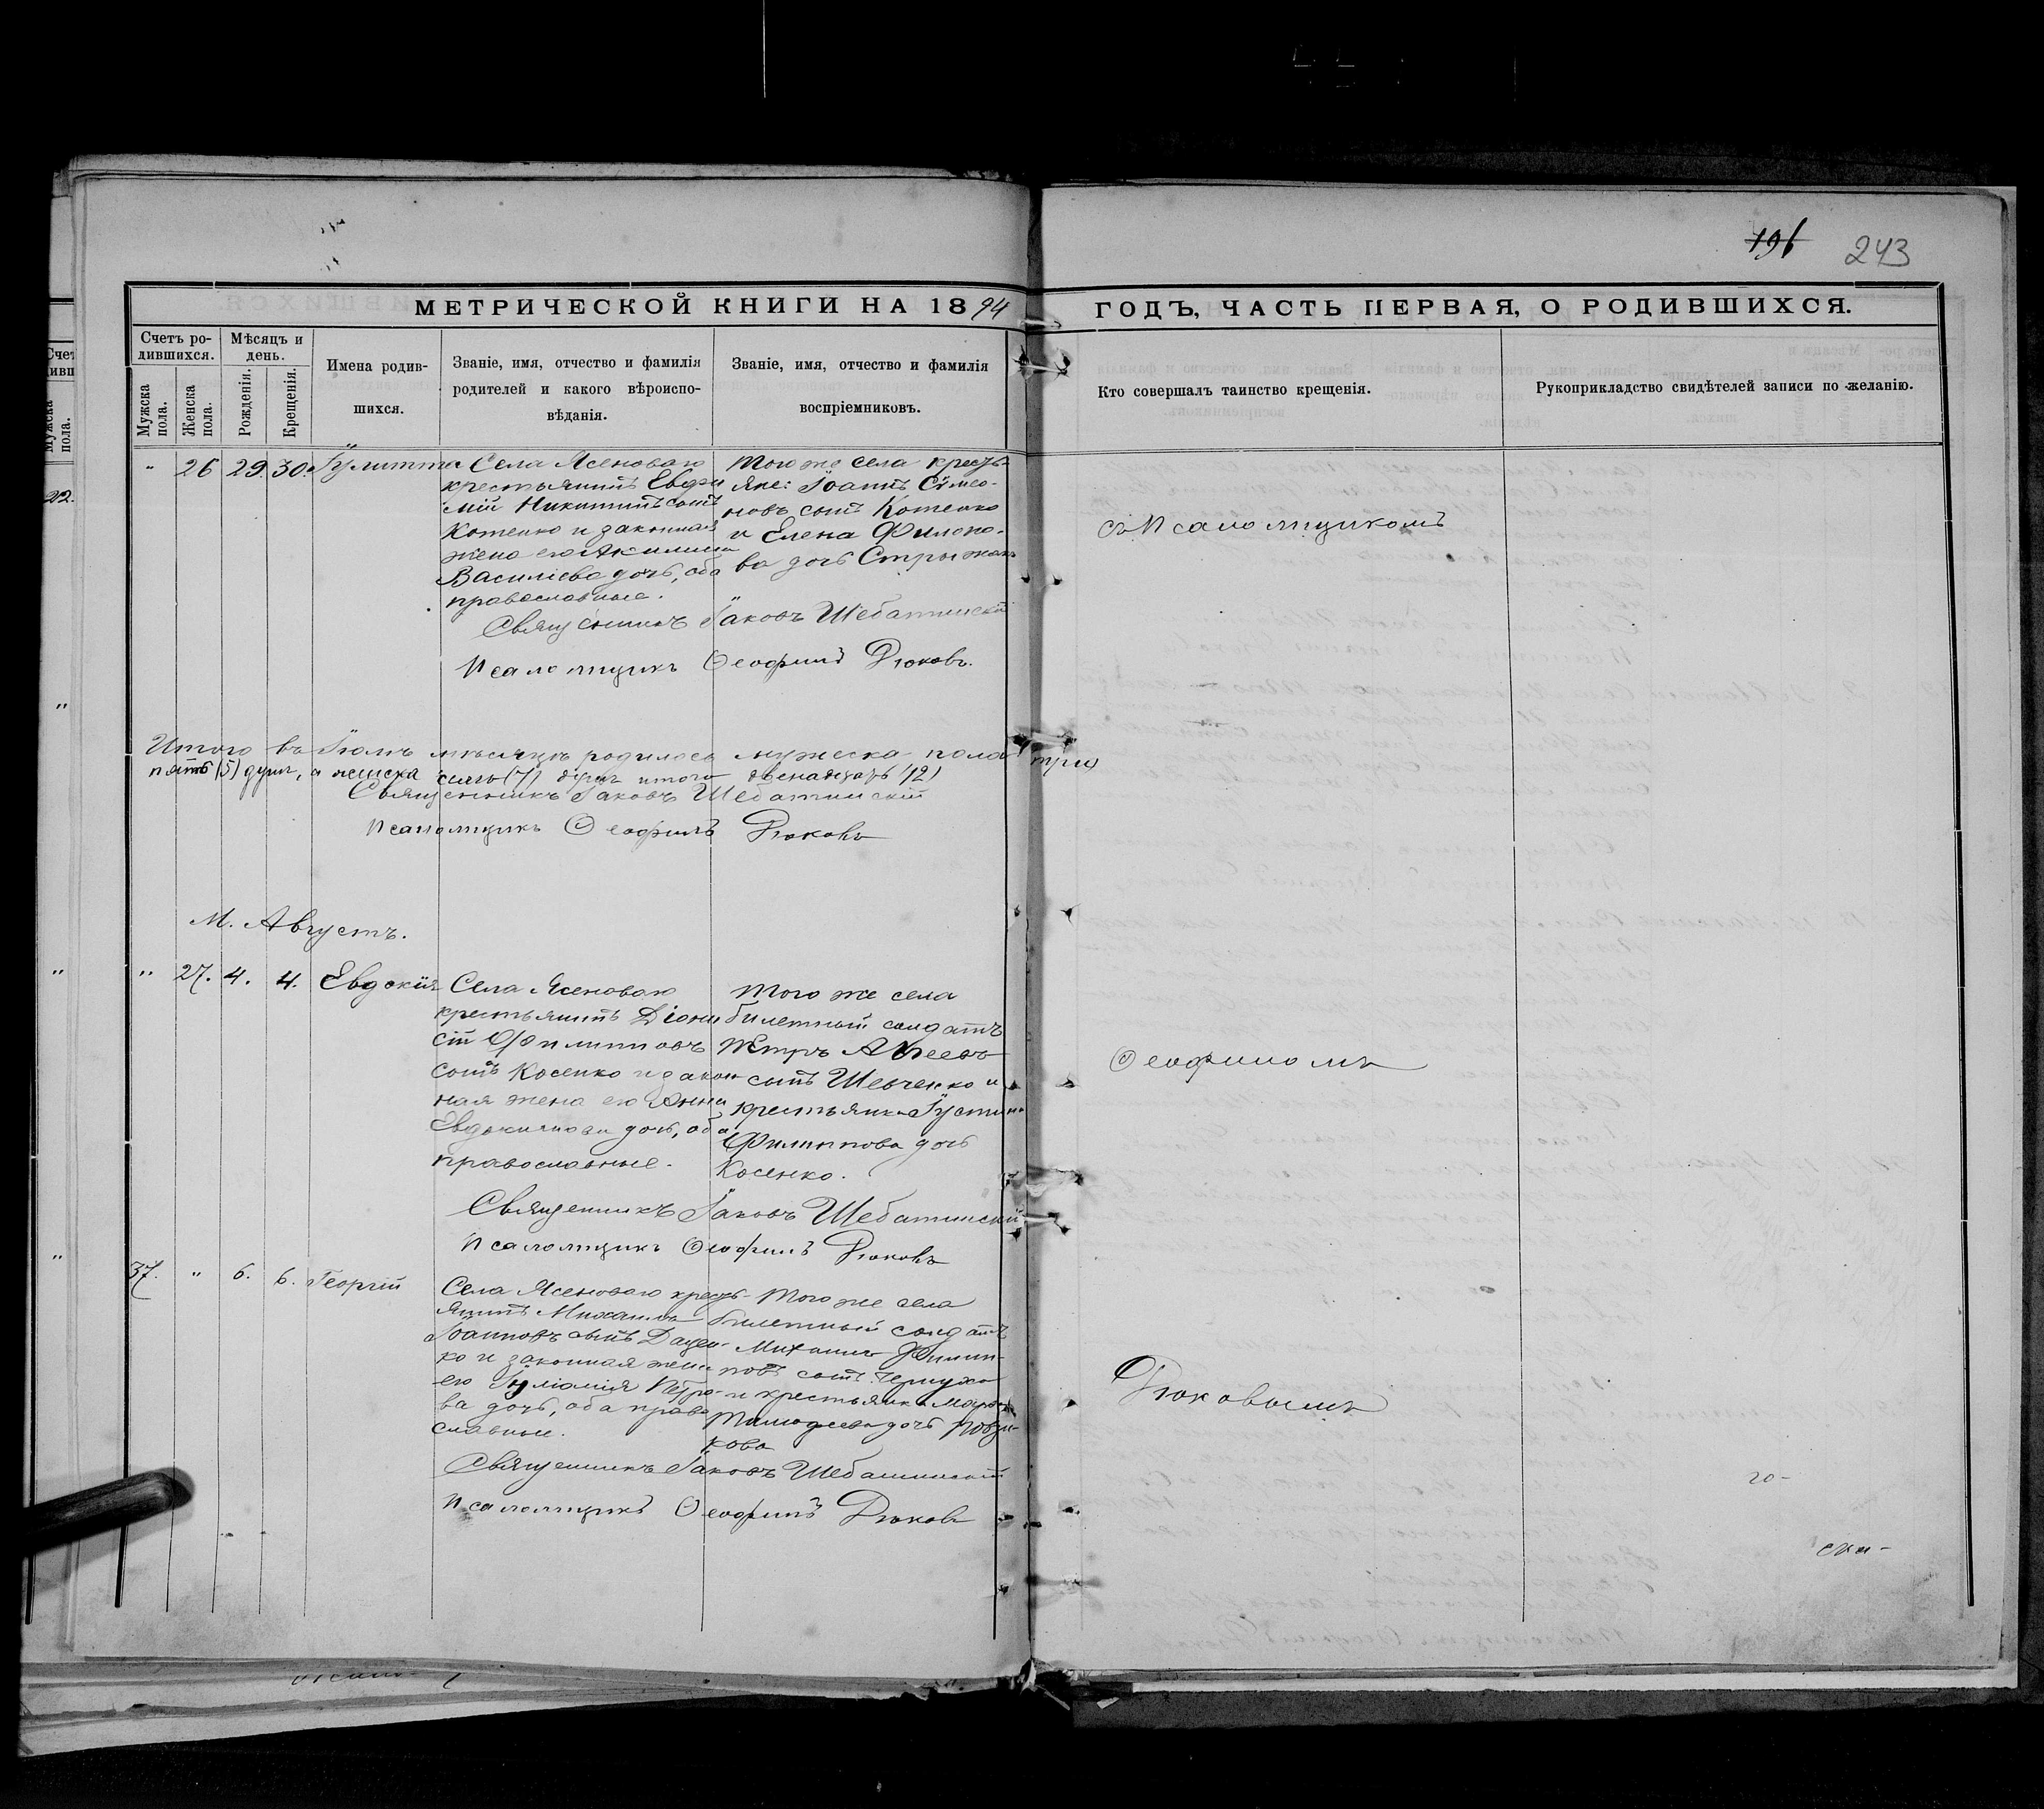 196 243
МЕТРИЧЕСКОЙ КНИГИ НА 1894 ГОДЪ, ЧАСТЬ ПЕРВАЯ, О РОДИВШИХСЯ.
Счетъ ро-
дившихся.
Мѣсяцъ и
день.
Мужска
пола.
Женска
пола.
Рожденія.
Крещенія.
Имена родив-
шихся.
Званіе, имя, отчество и фамилія
родителей и какого вѣроиспо-
вѣданія.
Званіе, имя, отчество и фамилія
воспріемниковъ.
Кто совершалъ таинство крещенія.
Рукоприкладство свидѣтелей записи по желанію.
" 26 29. 30. Іулитта
Села Ясеноваго
крестьянинъ Евфи
мій Никитинъ сынъ
Котенко и законная
жена его Акилина
Василіева дочь, оба
православные.
Того же села кресть-
яне: Іоаннъ Сѵмео-
новъ сынъ Котенко
и Елена Филоно-
ва дочь Стрыжак
Священникъ Іаковъ Шебатинскій
Псаломщикъ Ѳеофилъ Рюковъ.
съ Псаломщикомъ
Итого въ Іюлѣ мѣсяцѣ родилось мужеска пола
пять (5) душъ, а женска семь (7) душъ итого двенадцать (12)
Священникъ Іаковъ Шебатинскій
Псаломщикъ Ѳеофилъ Рюковъ
М. Августъ.
" 27. 4. 4. Евдокія
Села Ясеноваго
крестьянинъ Діони
сій Филиповъ
сынъ Косенко и закон
ная жена его Анна
Евдокимова дочь, оба
православные.
Того же села
билетный солдатъ
Петръ
сынъ Шевченко и
крестьянка Іустина
Филиппова дочь
Косенко.
Священникъ Іаковъ Шебатинскій
Псаломщикъ Ѳеофилъ Рюковъ
Ѳеофиломъ
37. " 6. 6. Георгій
Села Ясеноваго кресть-
янинъ Михаилъ
Іоанновъ сынъ Дацен-
ко и законная жена
его Іуліанія Петро-
ва дочь, оба право
славные.
Того же села
билетный солдатъ
Михаилъ Филип-
повъ сынъ
и крестьянка
Тимофеева дочь
кова
Священникъ Іаковъ Шебатинскій
Псаломщикъ Ѳеофилъ Рюковъ
Рюковымъ
го-
ски-